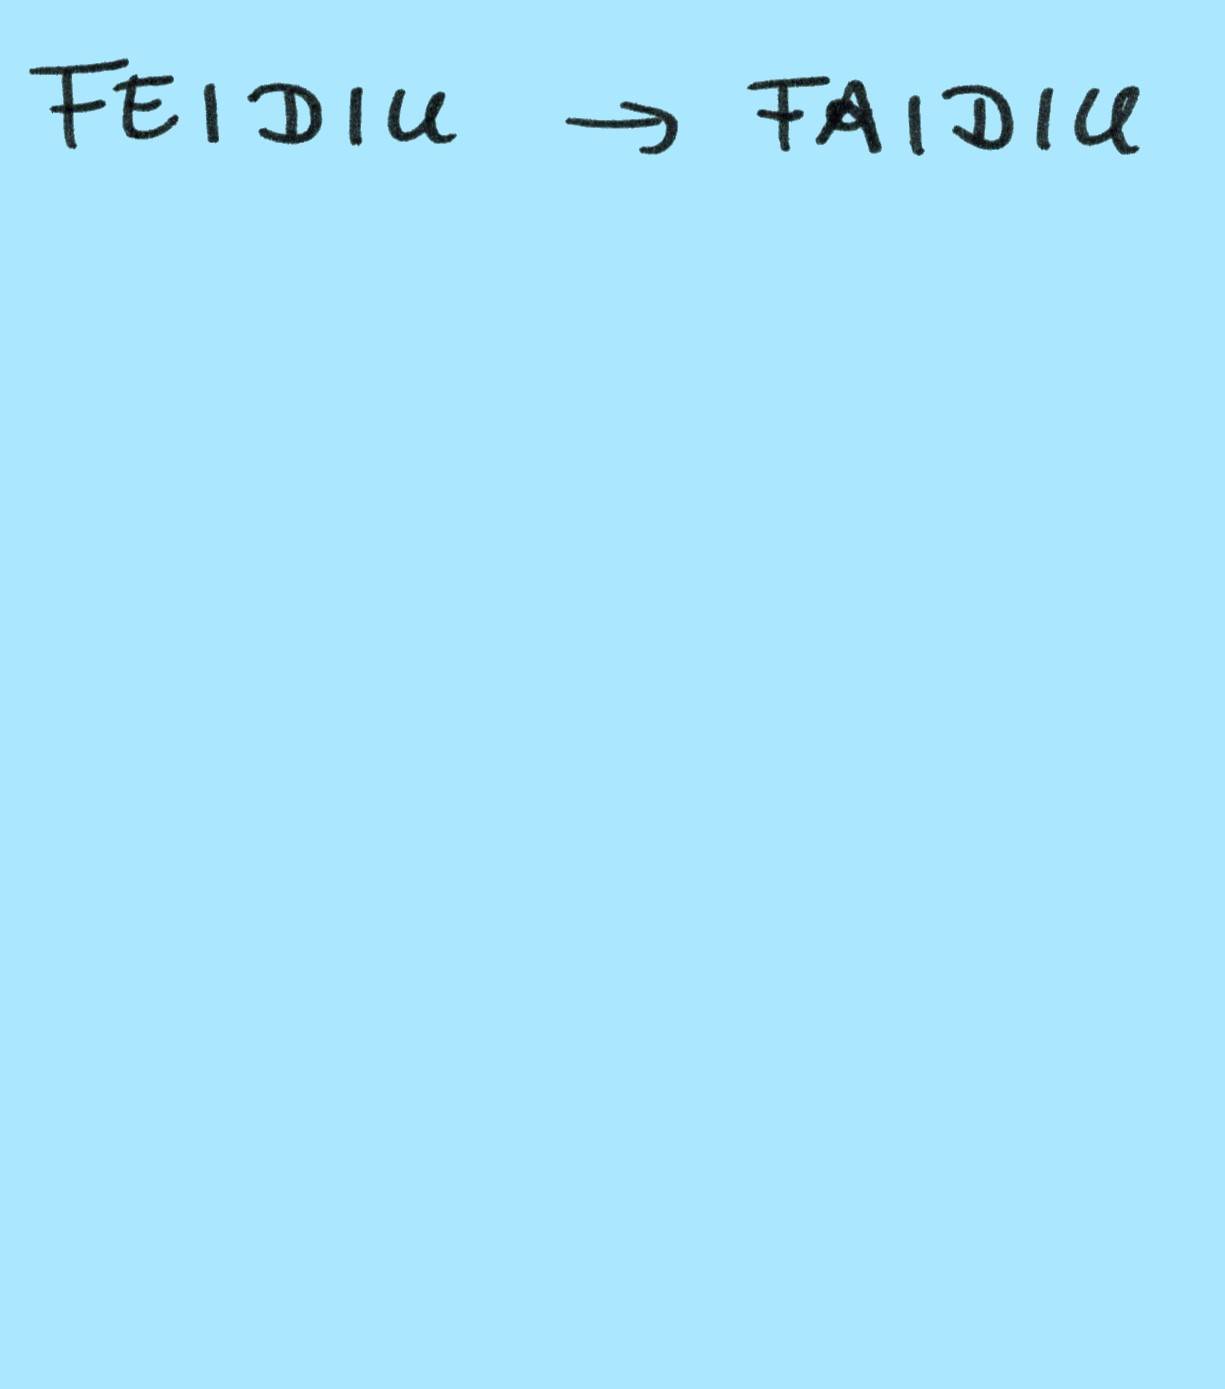 FEIDIU → FAIDIU